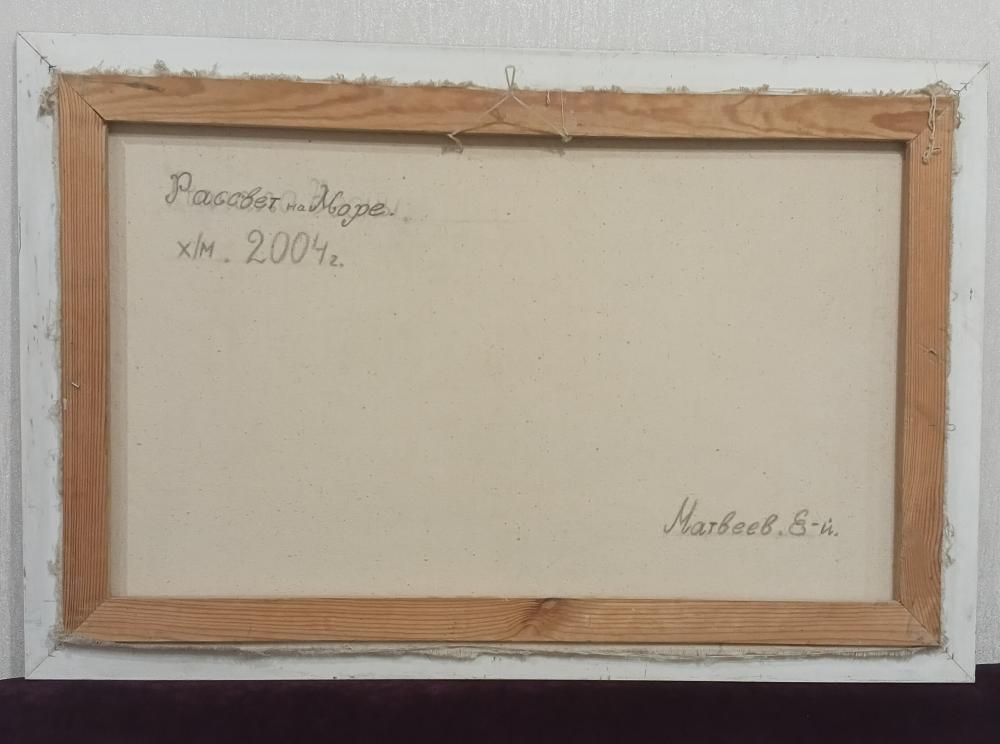 Рассвет на Море.
х/м. 2004г.
Матвеев. Е-й.